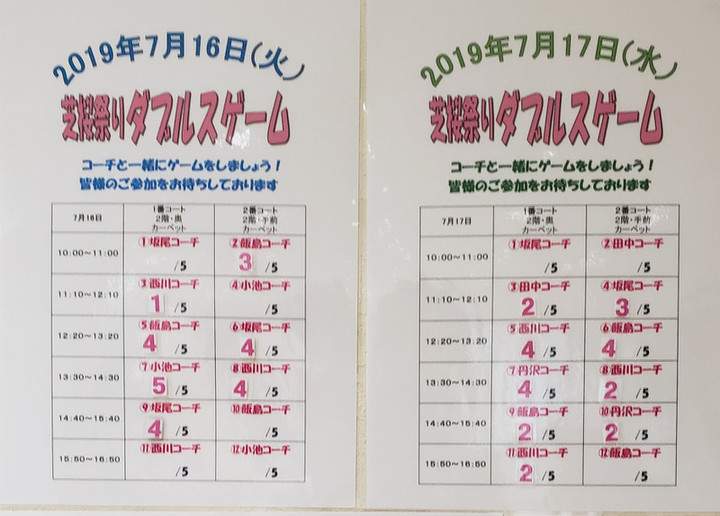 2019年7月16日(火)
芝桜祭りダブルスゲーム
コーチと一緒にゲームをしましょう!
皆様のご参加をお待ちしております
7月16日 1番コート 2階・奥 カーペット 2番コート 2階・手前 カーペット
10:00～11:00 ①坂尾コーチ /5 ②飯島コーチ 3 /5
11:10～12:10 ③西川コーチ 1 /5 ④小池コーチ /5
12:20～13:20 ⑤飯島コーチ 4 /5 ⑥坂尾コーチ 4 /5
13:30～14:30 ⑦小池コーチ 5 /5 ⑧西川コーチ 4 /5
14:40～15:40 ⑨坂尾コーチ 4 /5 ⑩飯島コーチ /5
15:50～16:50 ⑪西川コーチ /5 ⑫小池コーチ /5
2019年7月17日(水)
芝桜祭りダブルスゲーム
コーチと一緒にゲームをしましょう!
皆様のご参加をお待ちしております
7月17日 1番コート 2階・奥 カーペット 2番コート 2階・手前 カーペット
10:00～11:00 ①坂尾コーチ /5 ②田中コーチ /5
11:10～12:10 ③田中コーチ 2 /5 ④坂尾コーチ 3 /5
12:20～13:20 ⑤西川コーチ 4 /5 ⑥飯島コーチ 4 /5
13:30～14:30 ⑦丹沢コーチ 4 /5 ⑧西川コーチ 2 /5
14:40～15:40 ⑨飯島コーチ 2 /5 ⑩丹沢コーチ 2 /5
15:50～16:50 ⑪西川コーチ 2 /5 ⑫飯島コーチ /5